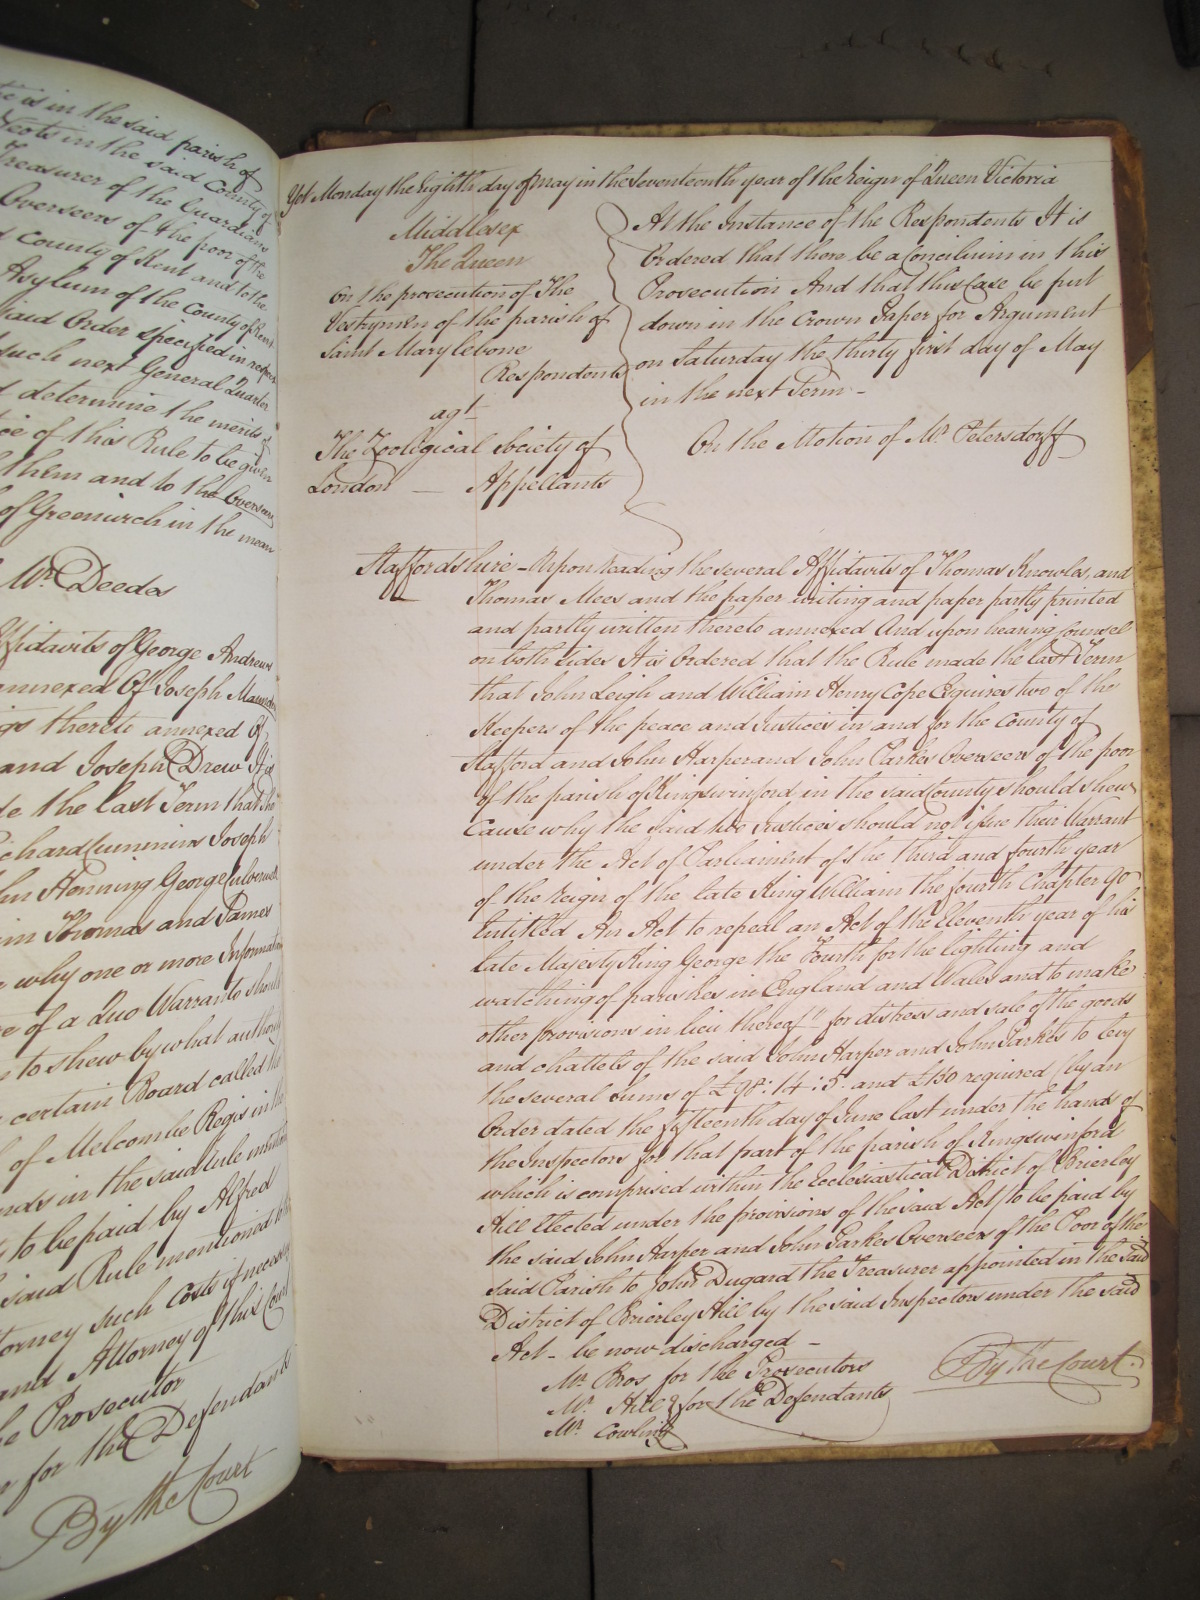 tie is in the said parish of
Cects in the said County of
Treasurer of the Guardians
Overseers of the poor of the
d County of Kent and to the
Asylum of the County of Kent
said Order specified in respect
such next General Quarter
d determine the merits of
ice of this Rule to be given
them and to the Overseers
of Greenwich in the mean
Mr. Deedes
ffidavits of George Andrews
annexed Of Joseph
gs thereto annexed Of
and Joseph Drew It is
de the last Term that the
ichard Cummins Joseph
hn Henning George Culverwell
in Thomas and James
why one or more Information
re of a Quo Warranto should
to shew by what authority
certain Board called the
of Melcombe Regis in the
nds in the said Rule mention
to be paid by Alfred
said Rule mentioned to the
torney such Costs if necessary
and Attorney of this Court
e Prosecutor
for the Defendants
By the Court
Yet Monday the Eighth day of May in the Seventeenth year of the Reign of Queen Victoria
Middlesex
The Queen
On the prosecution of The
Vestrymen of the parish of
Saint Marylebone
Respondents
agt.
The Zoological Society of
London — Appellants
At the Instance of the Respondents It is
Ordered that there be a Concilium in this
Prosecution And that this Case be put
down in the Crown Paper for Argument
on Saturday the thirty first day of May
in the next Term -
On the Motion of Mr. Petersdorff
Staffordshire - Upon reading the several Affidavits of Thomas Knowles, and
Thomas Mees and the paper writing and paper partly printed
and partly written thereto annexed And upon hearing Counsel
on both sides It is Ordered that the Rule made the last Term
that John Leigh and William Henry Cope Esquires two of the
Keepers of the peace and Justices in and for the County of
Stafford and John Harper and John Parkes Overseers of the poor
of the parish of Kingswinford in the said County should shew
Cause why the said two Justices should not issue their Warrant
under the Act of Parliament of the third and fourth year
of the reign of the late King William the fourth Chapter 90
Entitled An Act to repeal an Act of the Eleventh year of his
late Majesty King George the Fourth for the lighting and
watching of parishes in England and Wales and to make
other provisions in lieu thereof" for distress and sale of the goods
and chattels of the said John Harper and John Parkes to levy
the several sums of £98 : 14 : 5. and £150 required (by an
Order dated the fifteenth day of June last under the hands of
the Inspectors for that part of the parish of Kingswinford
which is comprised within the Ecclesiastical District of Brierley
Hill Elected under the provisions of the said Act) to be paid by
the said John Harper and John Parkes Overseers of the Poor of the
said Parish to John Dugard the Treasurer appointed in the said
District of Brierley Hill by the said Inspectors under the said
Act - be now discharged -
Mr. Bros for the Prosecutors
Mr. Hill } for the Defendants
Mr. Cowling
By the Court.